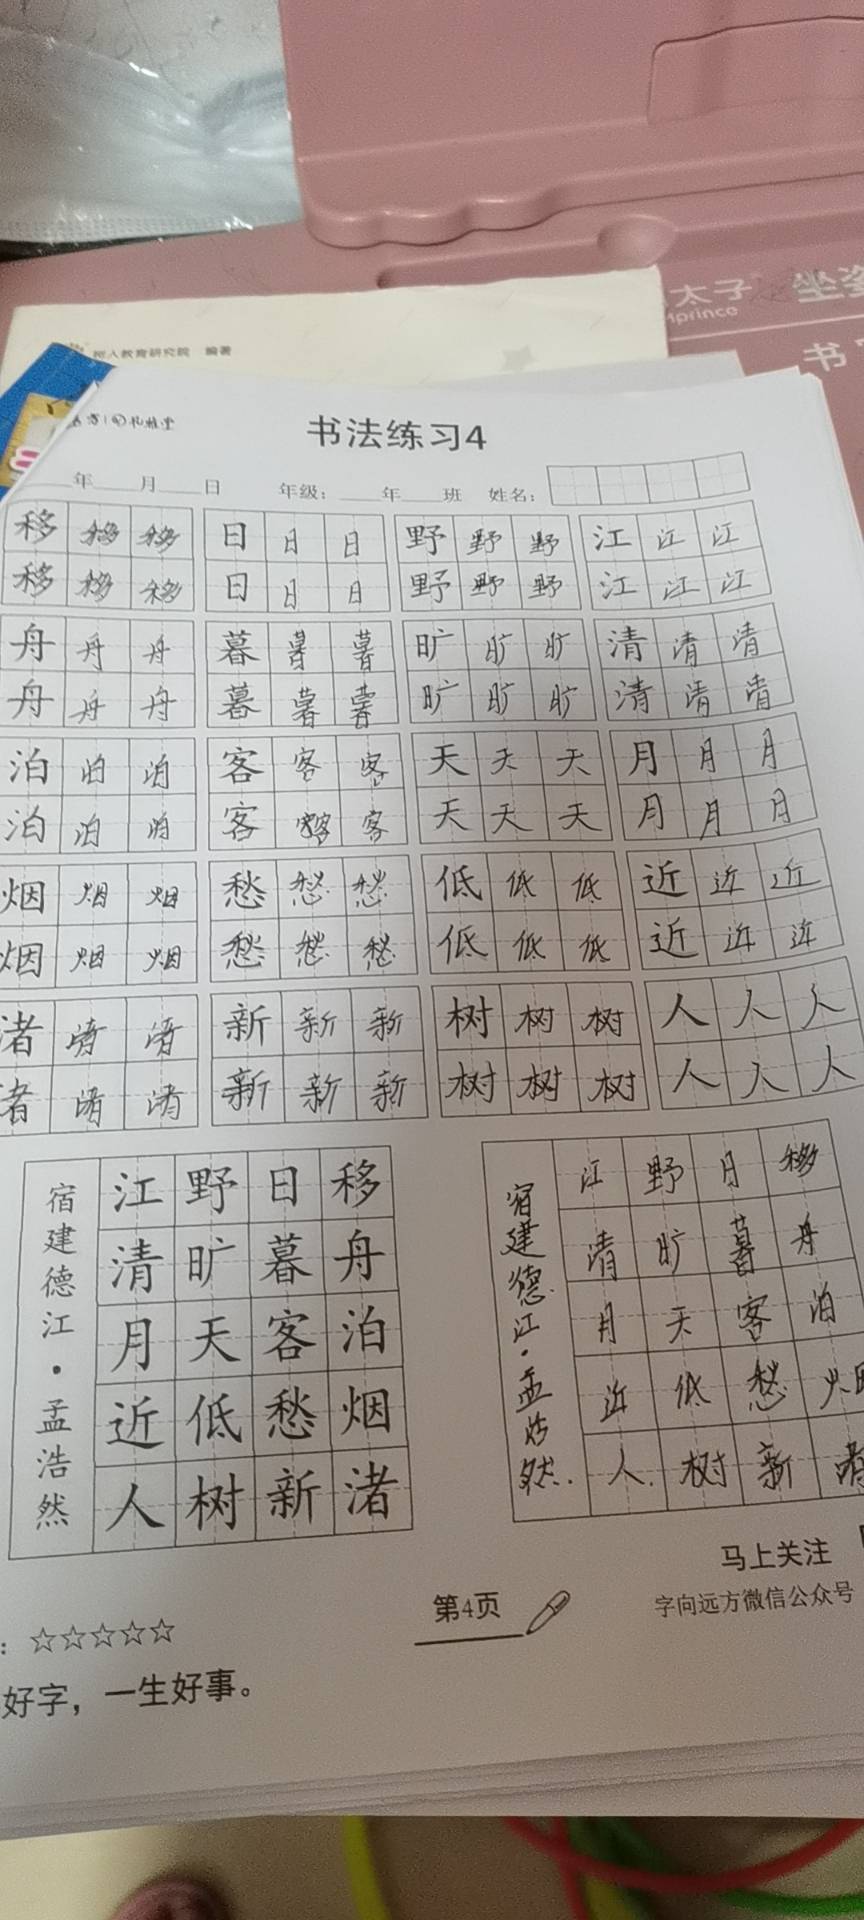 太子 坐姿
prince
书
树人教育研究院 编著
书法练习4
年 月 日 年级: 年 班 姓名:
移 移 移 日 日 日 野 野 野 江 江 江
移 移 移 日 日 日 野 野 野 江 江 江
舟 舟 舟 暮 暮 暮 旷 旷 旷 清 清 清
舟 舟 舟 暮 暮 暮 旷 旷 旷 清 清 清
泊 泊 泊 客 客 客 天 天 天 月 月 月
泊 泊 泊 客 客 客 天 天 天 月 月 月
烟 烟 烟 愁 愁 愁 低 低 低 近 近 近
烟 烟 烟 愁 愁 愁 低 低 低 近 近 近
渚 渚 渚 新 新 新 树 树 树 人 人 人
渚 渚 渚 新 新 新 树 树 树 人 人 人
移舟泊烟渚
日暮客愁新
野旷天低树
江清月近人
宿建德江·孟浩然
移舟泊烟渚
日暮客愁新
野旷天低树
江清月近人.
宿建德江·孟浩然.
马上关注
字向远方微信公众号
第4页
: ☆☆☆☆☆
好字，一生好事。